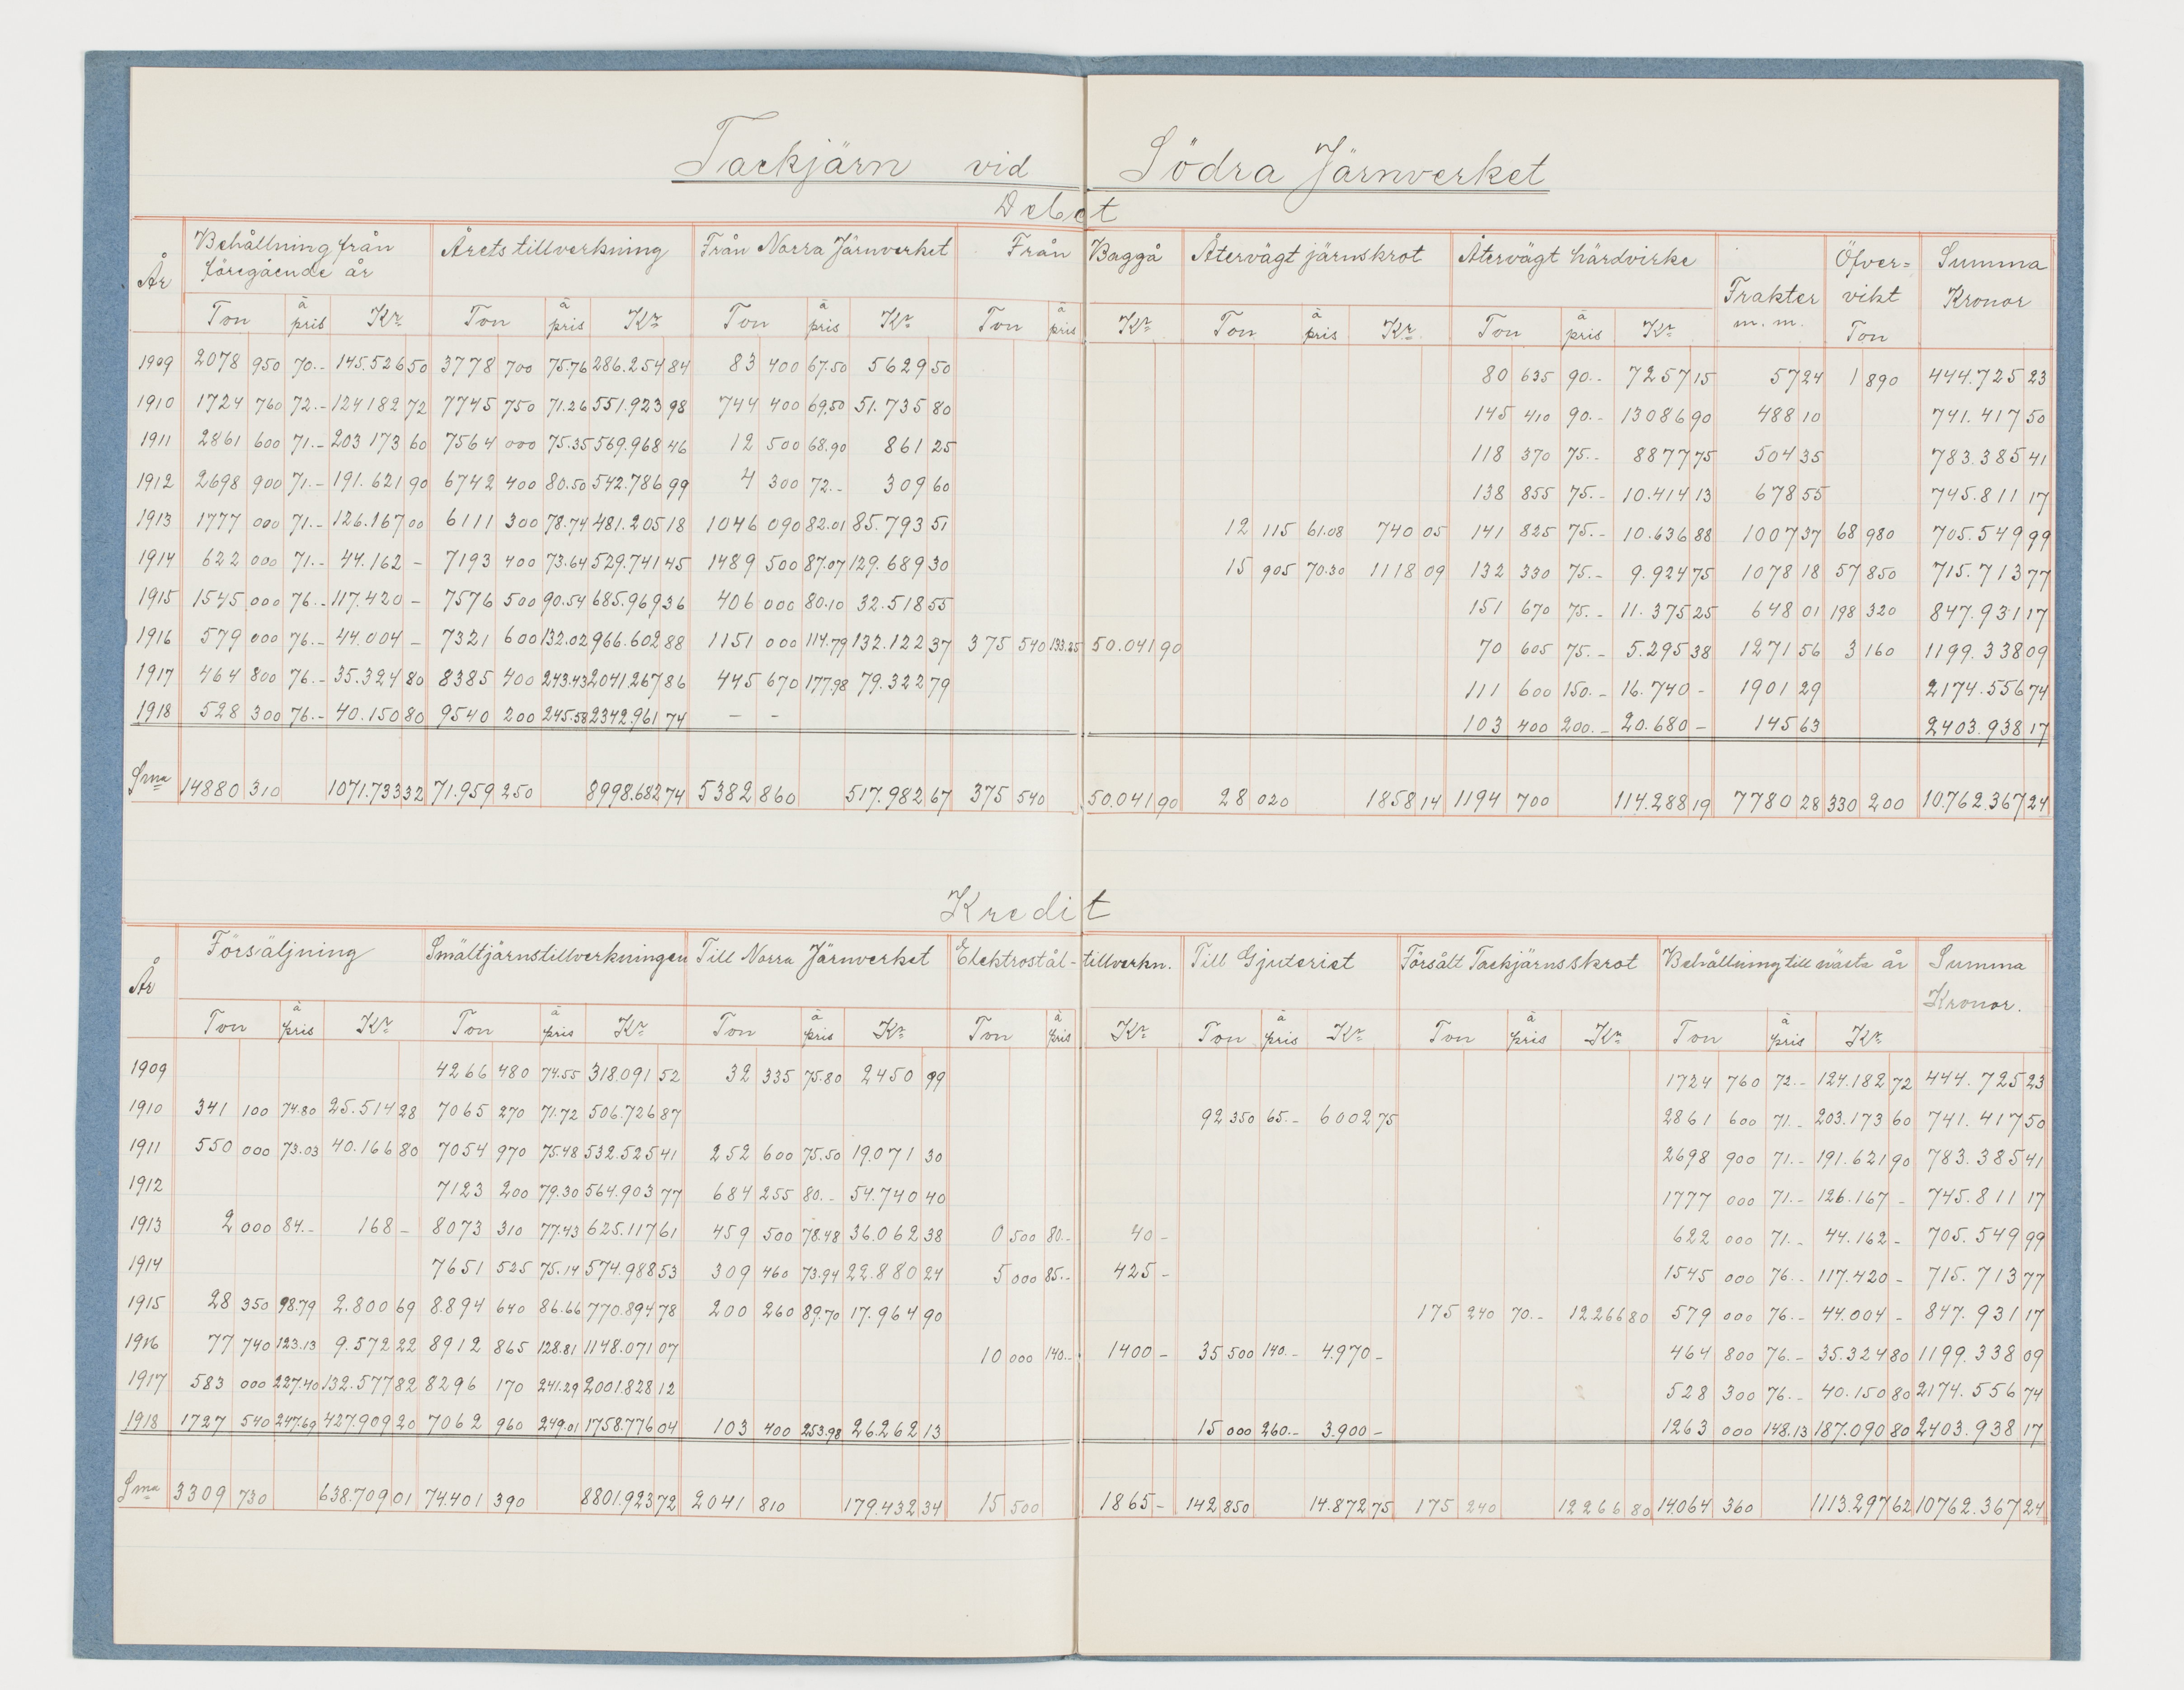 Tackjärn vid Södra Järnverket
Debet
År Behållning från föregående år Årets tillverkning Från Norra Järnverket Från Baggå Återvägt järnskrot Återvägt härdvirke Frakter m.m. Öfver=vikt Ton Summa Kronor
Ton à pris Kr Ton à pris Kr Ton à pris Kr Ton à pris Kr Ton à pris Kr Ton à pris Kr
1909 2078 950 70.- 145.526 50 3778 700 75.76 286.254 84 83 400 67.50 5629 50 80 635 90.- 7257 15 57 24 1 890 444.725 23
1910 1724 760 72.- 124182 72 7745 750 71.26 551.923 98 744 400 69.50 51.735 80 145 410 90.- 13086 90 488 10 741.417 50
1911 2861 600 71.- 203 173 60 7564 000 75.35 569.968 46 12 500 68.90 861 25 118 370 75.- 8877 75 504 35 783.385 41
1912 2698 900 71.- 191.621 90 6742 400 80.50 542.786 99 4 300 72.- 309 60 138 855 75.- 10.414 13 678 55 745.811 17
1913 1777 000 71.- 126.167 00 6111 300 78.74 481.205 18 1046 090 82.01 85.793 51 12 115 61.08 740 05 141 825 75.- 10.636 88 1007 37 68 980 705.549 99
1914 622 000 71.- 44.162 - 7193 400 73.64 529.741 45 1489 500 87.07 129.689 30 15 905 70.30 1118 09 132 330 75.- 9.924 75 1078 18 57 850 715.713 77
1915 1545 000 76.- 117.420 - 7576 500 90.54 685.969 36 406 000 80.10 32.518 55 151 670 75.- 11.375 25 648 01 198 320 847.931 17
1916 579 000 76.- 44.004 - 7321 600 132.02 966.602 88 1151 000 114.79 132.122 37 375 540 133.25 50.041 90 70 605 75.- 5.295 38 1271 56 3 160 1199.338 09
1917 464 800 76.- 35.324 80 8385 400 243.43 2041.267 86 445 670 177.98 79.322 79 111 600 150.- 16.740 - 1901 29 2174.556 74
1918 528 300 76.- 40.150 80 9540 200 245.58 2342.961 74 - - 103 400 200.- 20.680 - 145 63 2403.938 17
Sma 14880 310 1071.733 32 71.959 250 8998.682 74 5382 860 517.982 67 375 540 50.041 90 28 020 1858 14 1194 700 114.288 19 7780 28 330 200 10.762.367 24
Kredit
År Försäljning Smältjärnstillverkningen Till Norra Järnverket Elektrostål-tillverkn. Till Gjuteriet Försålt Tackjärnsskrot Behållning till nästa år Summa Kronor.
Ton à pris Kr Ton à pris Kr Ton à pris Kr Ton à pris Kr Ton à pris Kr Ton à pris Kr Ton à pris Kr
1909 4266 480 74.55 318.091 52 32 335 75.80 2450 99 1724 760 72.- 124.182 72 444.725 23
1910 341 100 74.80 25.514 28 7065 270 71.72 506.726 87 92 350 65.- 6002 75 2861 600 71.- 203.173 60 741.417 50
1911 550 000 73.03 40.166 80 7054 970 75.48 532.525 41 252 600 75.50 19.071 30 2698 900 71.- 191.621 90 783.385 41
1912 7123 200 79.30 564.903 77 684 255 80.- 54.740 40 1777 000 71.- 126.167 - 745.811 17
1913 2 000 84.- 168 - 8073 310 77.43 625.117 61 459 500 78.48 36.062 38 0 500 80.- 40 - 622 000 71.- 44.162 - 705.549 99
1914 7651 525 75.14 574.988 53 309 460 73.94 22.880 24 5 000 85.- 425 - 1545 000 76.- 117.420 - 715.713 77
1915 28 350 98.79 2.800 69 8.894 640 86.66 770.894 78 200 260 89.70 17.964 90 175 240 70.- 12266 80 579 000 76.- 44.004 - 847.931 17
1916 77 740 123.13 9.572 22 8912 865 128.81 1148.071 07 10 000 140.- 1400 - 35 500 140.- 4.970 - 464 800 76.- 35.324 80 1199.338 09
1917 583 000 227.40 132.577 82 8296 170 241.29 2001.828 12 528 300 76.- 40.150 80 2174.556 74
1918 1727 540 247.69 427.909 20 7062 960 249.01 1758.776 04 103 400 253.98 26.262 13 15 000 260.- 3.900 - 1263 000 148.13 187.090 80 2403.938 17
Sma 3309 730 638.709 01 74.401 390 8801.923 72 2041 810 179.432 34 15 500 1865 - 142 850 14.872 75 175 240 12266 80 14.064 360 1113.297 62 10762.367 24